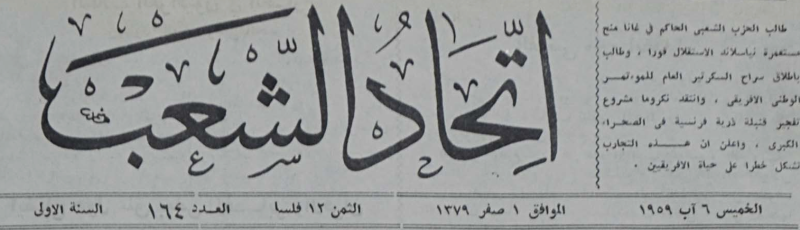 طالب الحزب الشعبي الحاكم في غانا منح
مستعمرة نياسلاند الاستقلال فورا ، وطالب
باطلاق سراح السكرتير العام للموءتمر
الوطني الافريقي ، وانتقد نكروما مشروع
تفجير قنبلة ذرية فرنسية في الصحراء
الكبرى ، واعلن ان هذه التجارب
تشكل خطرا على حياة الافريقيين .
اتحاد الشعب
الخميس ٦ آب ١٩٥٩ الموافق ١ صفر ١٣٧٩ الثمن ١٢ فلسا العدد ١٦٤ السنة الاولى